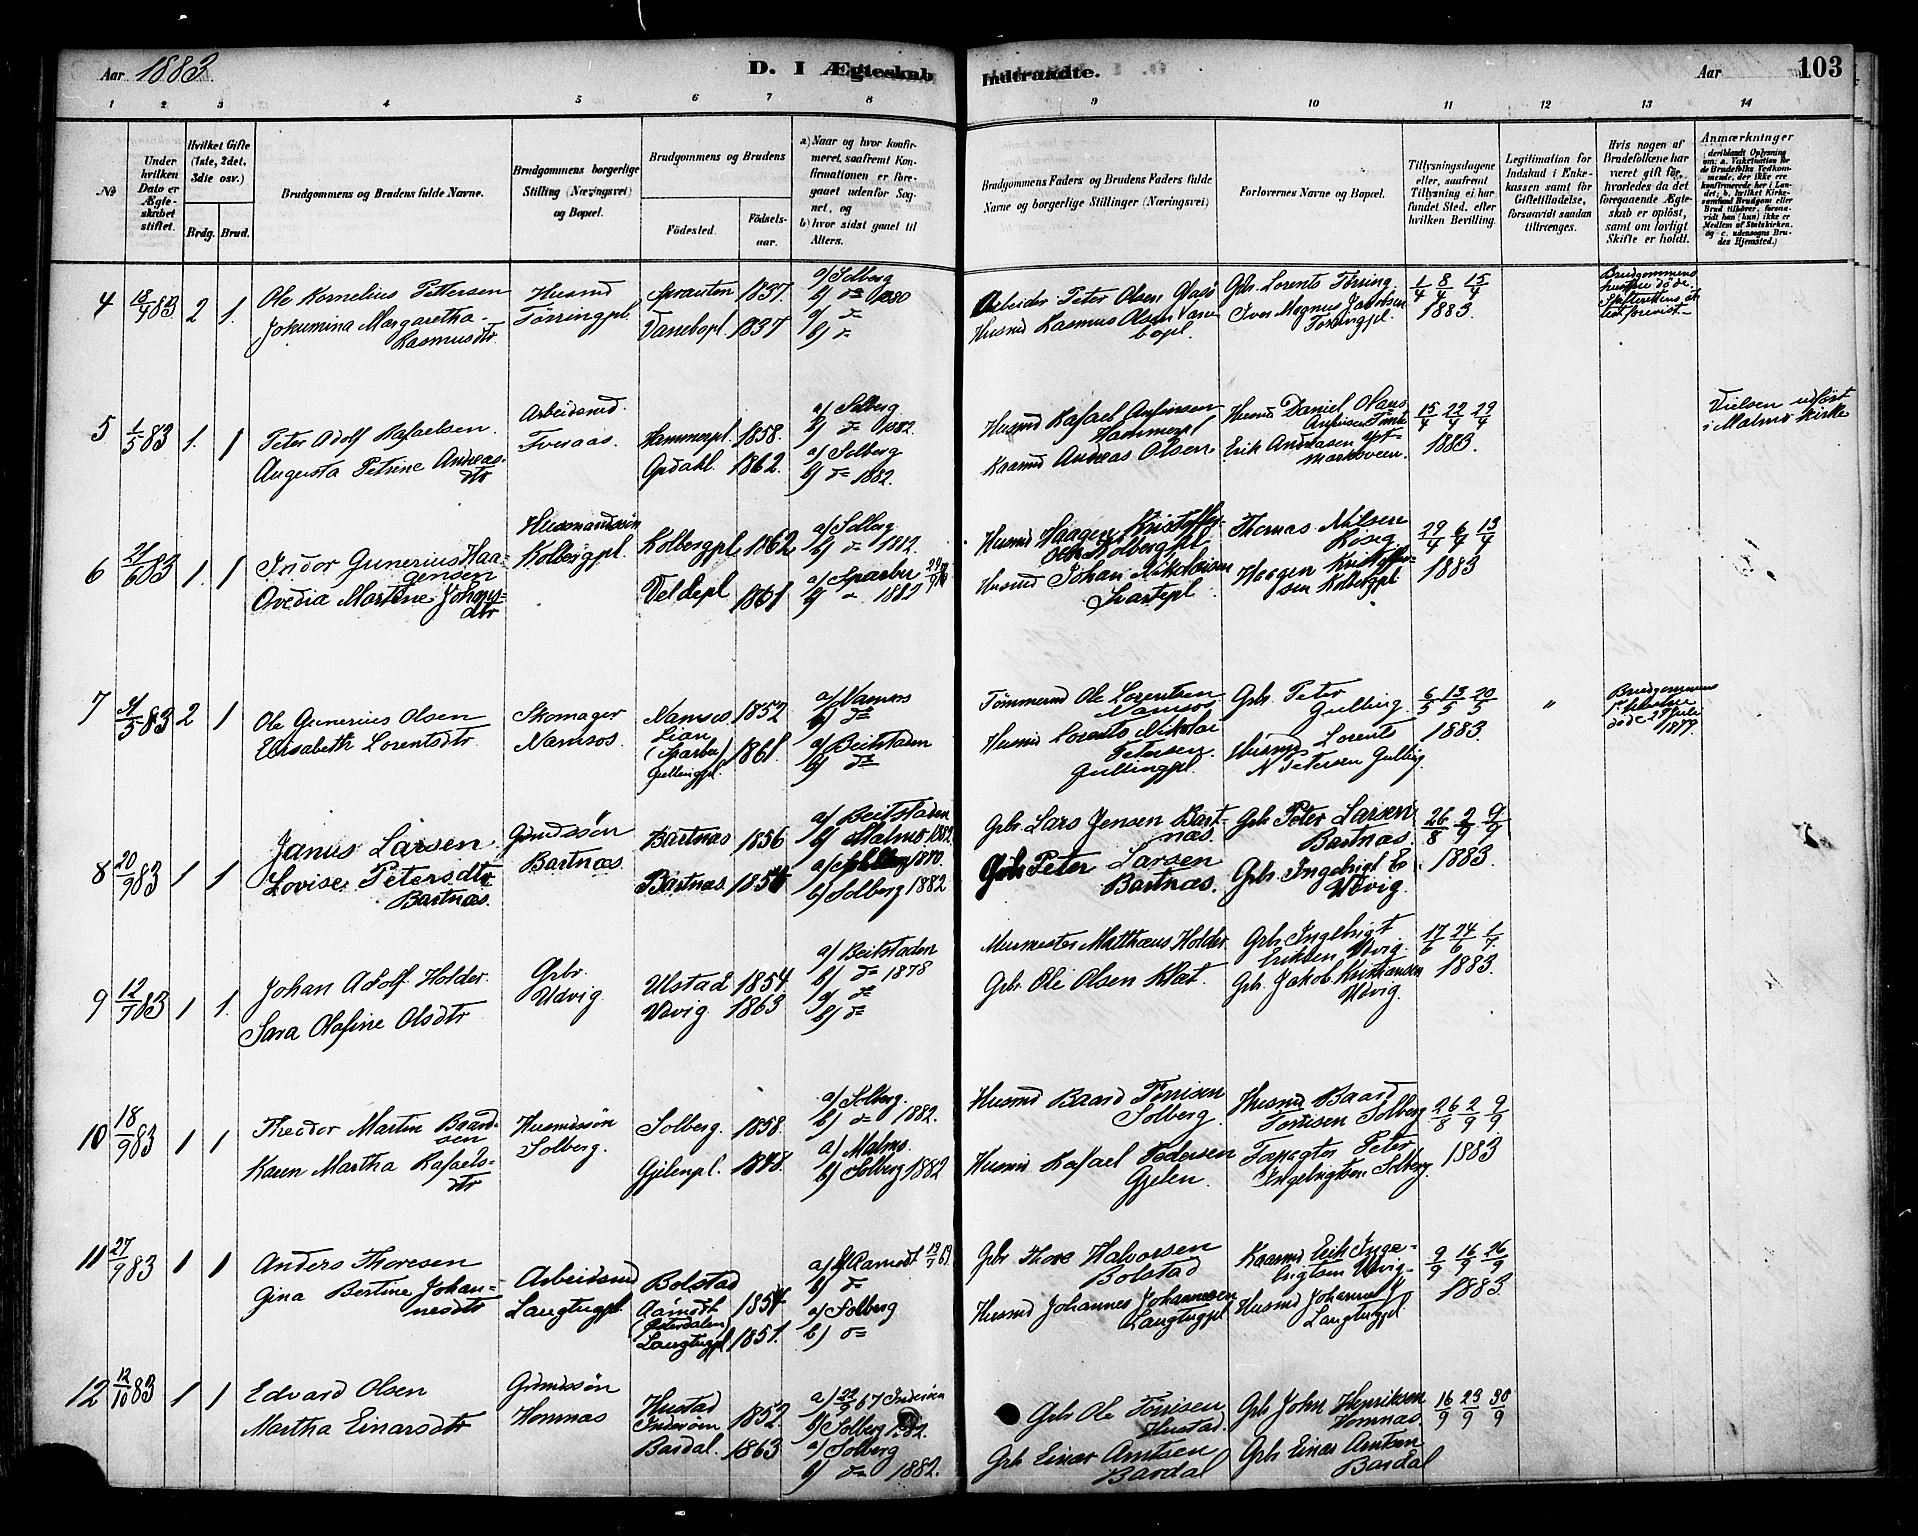 Aar 1883.
D. I Ægteskab Indtraadte.
Aar
103
1 2 3 4 5 6 7 8 9 10 11 12 13 14
No
Under hvilken Dato er Ægteskabet stiftet.
Hvilket Gifte (1ste, 2det, 3die osv.)
Brdg. Brud.
Brudgommens og Brudens fulde Navne.
Brudgommens borgerlige Stilling (Næringsvei) og Bopæl.
Brudgommens og Brudens
Födested.
Födsels-aar.
a) Naar og hvor konfirmeret, saafremt Konfirmationen er foregaaet udenfor Sognet, og
b) hvor sidst gaaet til Alters.
Brudgommens Faders og Brudens Faders fulde Navne og borgerlige Stillinger (Næringsvei)
Forlovernes Navne og Bopæl.
Tillysningsdagene eller, saafremt Tillysning ei har fundet Sted, efter hvilken Bevilling.
Legitimation for Indskud i Enkekassen samt for Giftetilladelse, forsaavidt saadan tiltrænges.
Hvis nogen af Brudefolkene har været gift för, hvorledes da det foregaaende Ægteskab er oplöst, samt om lovligt Skifte er holdt.
Anmærkninger
4 18/4 83 2 1.
Ole Kornelius Pettersen
Jokumina Margaretha
Rasmusdtr
Husmd
Törringpl.
1837.
Vanebopl 1837
a) Solberg
Arbeider Peter Olsen
Husmd Rasmus Olsen Vane-
bopl
Gbr. Lorents Törring
Iver Magnus Jakobsen
Törringpl.
1/4 8/4 15/4
1883.
Brudgommens
hustru döde.
5 1/5 83 1. 1
Peter Adolf Rafaelsen
Augusta Petrine Andreas-
dtr
Arbeidsmd.
Tveraas.
Hammerpl. 1858.
Opdahl. 1862.
a) Solberg
b) do 1882.
a) Solberg
b) do 1882.
Husmd Rafael
Hammerpl
Kaarmd Andreas Olsen
Husmd Daniel
Erik Andreasen
15/4 22/4 29/4
1883.
Vielsen udfört
i Malmo Kirke
6 21/6 83 1. 1
Indor Gunerius Haa-
gensen
Ovedia Martine Johans-
dtr
Husmandssön
Kolbergpl.
Kolbergpl. 1862.
Veldepl 1861
a) Solberg
b) do 1882.
a) Sparbu
b) 1882
Husmd Haagen Kristoffer-
sen Kolbergpl
Husmd Johan Nikolaisen
Svartepl
Thomas Nilsen
Haagen Kristoffer-
sen Kolbergpl
29/4 6/4 13/4
1883
7 31/5 83 2 1
Ole Gunerius Olsen
Elisabeth Lorentsdtr
Skomager
Namsos.
Namsos 1852
Lian
(Sparbu) 1861
Gullingpl.
a) Namsos
b) do
a) Beitstaden
b) do
Tömmermd Ole Lorentsen
Namsos
Husmd Lorents Nikolai
Petersen
Gullingpl.
Gbr. Peter
Gulling.
Husmd Lorents
N Petersen Gulling.
6/5 13/5 20/5
1883.
"
Brudgommens
1st hustru
döde 27 Juli
1879.
8 20/9 83 1 1
Janus Larsen
Lovise Petersdtr
Bartnæs.
Grmdssön
Bartnæs.
Bartnæs 1856
Bartnæs 1854
a) Beitstaden
b) Malmo 1882.
b) Solberg 1882
Gbr Lars Jensen Bart-
næs.
Gbr Peter Larsen
Bartnæs.
Gbr Peter Larsen
Bartnæs.
Gbr. Ingebrigt E.
Udvig.
26/8 2/9 9/9
1883.
9 12/7 83 1 1.
Johan Adolf Holder.
Sara Olafine Olsdtr
Gbr.
Udvig
Ulstad 1854
Udvig. 1863
a) Beitstaden
b) do 1878
a) do
b) do
Murmester Matthæus Holder.
Gbr Ole Olsen Klæt.
Gbr. Ingebrigt
Eriksen Udvig
Gbr. Jakob Kristiansen
Udvig.
17/6 24/6 1/7
1883.
10 18/9 83 1 1
Theodor Martin Baard-
sen
Karen Martha Rafaels-
dtr
Husmdssön
Solberg.
Solberg. 1858.
Gjelenpl. 1848.
a) Solberg.
b) do 1882.
a) Malmo.
b) Solberg 1882
Husmd Baard Törrisen
Solberg.
Husmd Rafael Pedersen
Gjelen.
Husmd Baard
Törrisen Solberg
Forpagter Peter
Ingebrigtsen Solberg.
26/8 2/9 9/9
1883
11 27/9 83 1 1
Anders Thoresen
Gina Bertine Johan-
nesdtr
Arbeidsmd
Langtugpl.
Bolstad
Aamodt 1854
(Österdalen)
Langtugpl 1851.
b) do
a) Solberg
b) do
Gbr Thore Halvorsen
Bolstad
Husmd Johannes Johannesen
Langtugpl
Kaarmd Erik Inge-
brigtsen Udvig
Husmd Johannes J
Langtugpl
9/9 16/9 26/9
1883.
12 12/10 83 1 1
Edvard Olsen
Martha Einarsdtr
Grmdssön
Homnæs
Hustad
Inderöen 1852.
Bardal. 1863
a) 22/9 67 Inderöen
b) Solberg 1882.
a) Solberg
b) do 1882.
Gbr Ole Törrisen
Hustad.
Gbr Einar Arntsen
Bardal
Gbr John Henriksen
Homnæs.
Gbr Einar Arntsen
Bardal
16/9 23/9 30/9